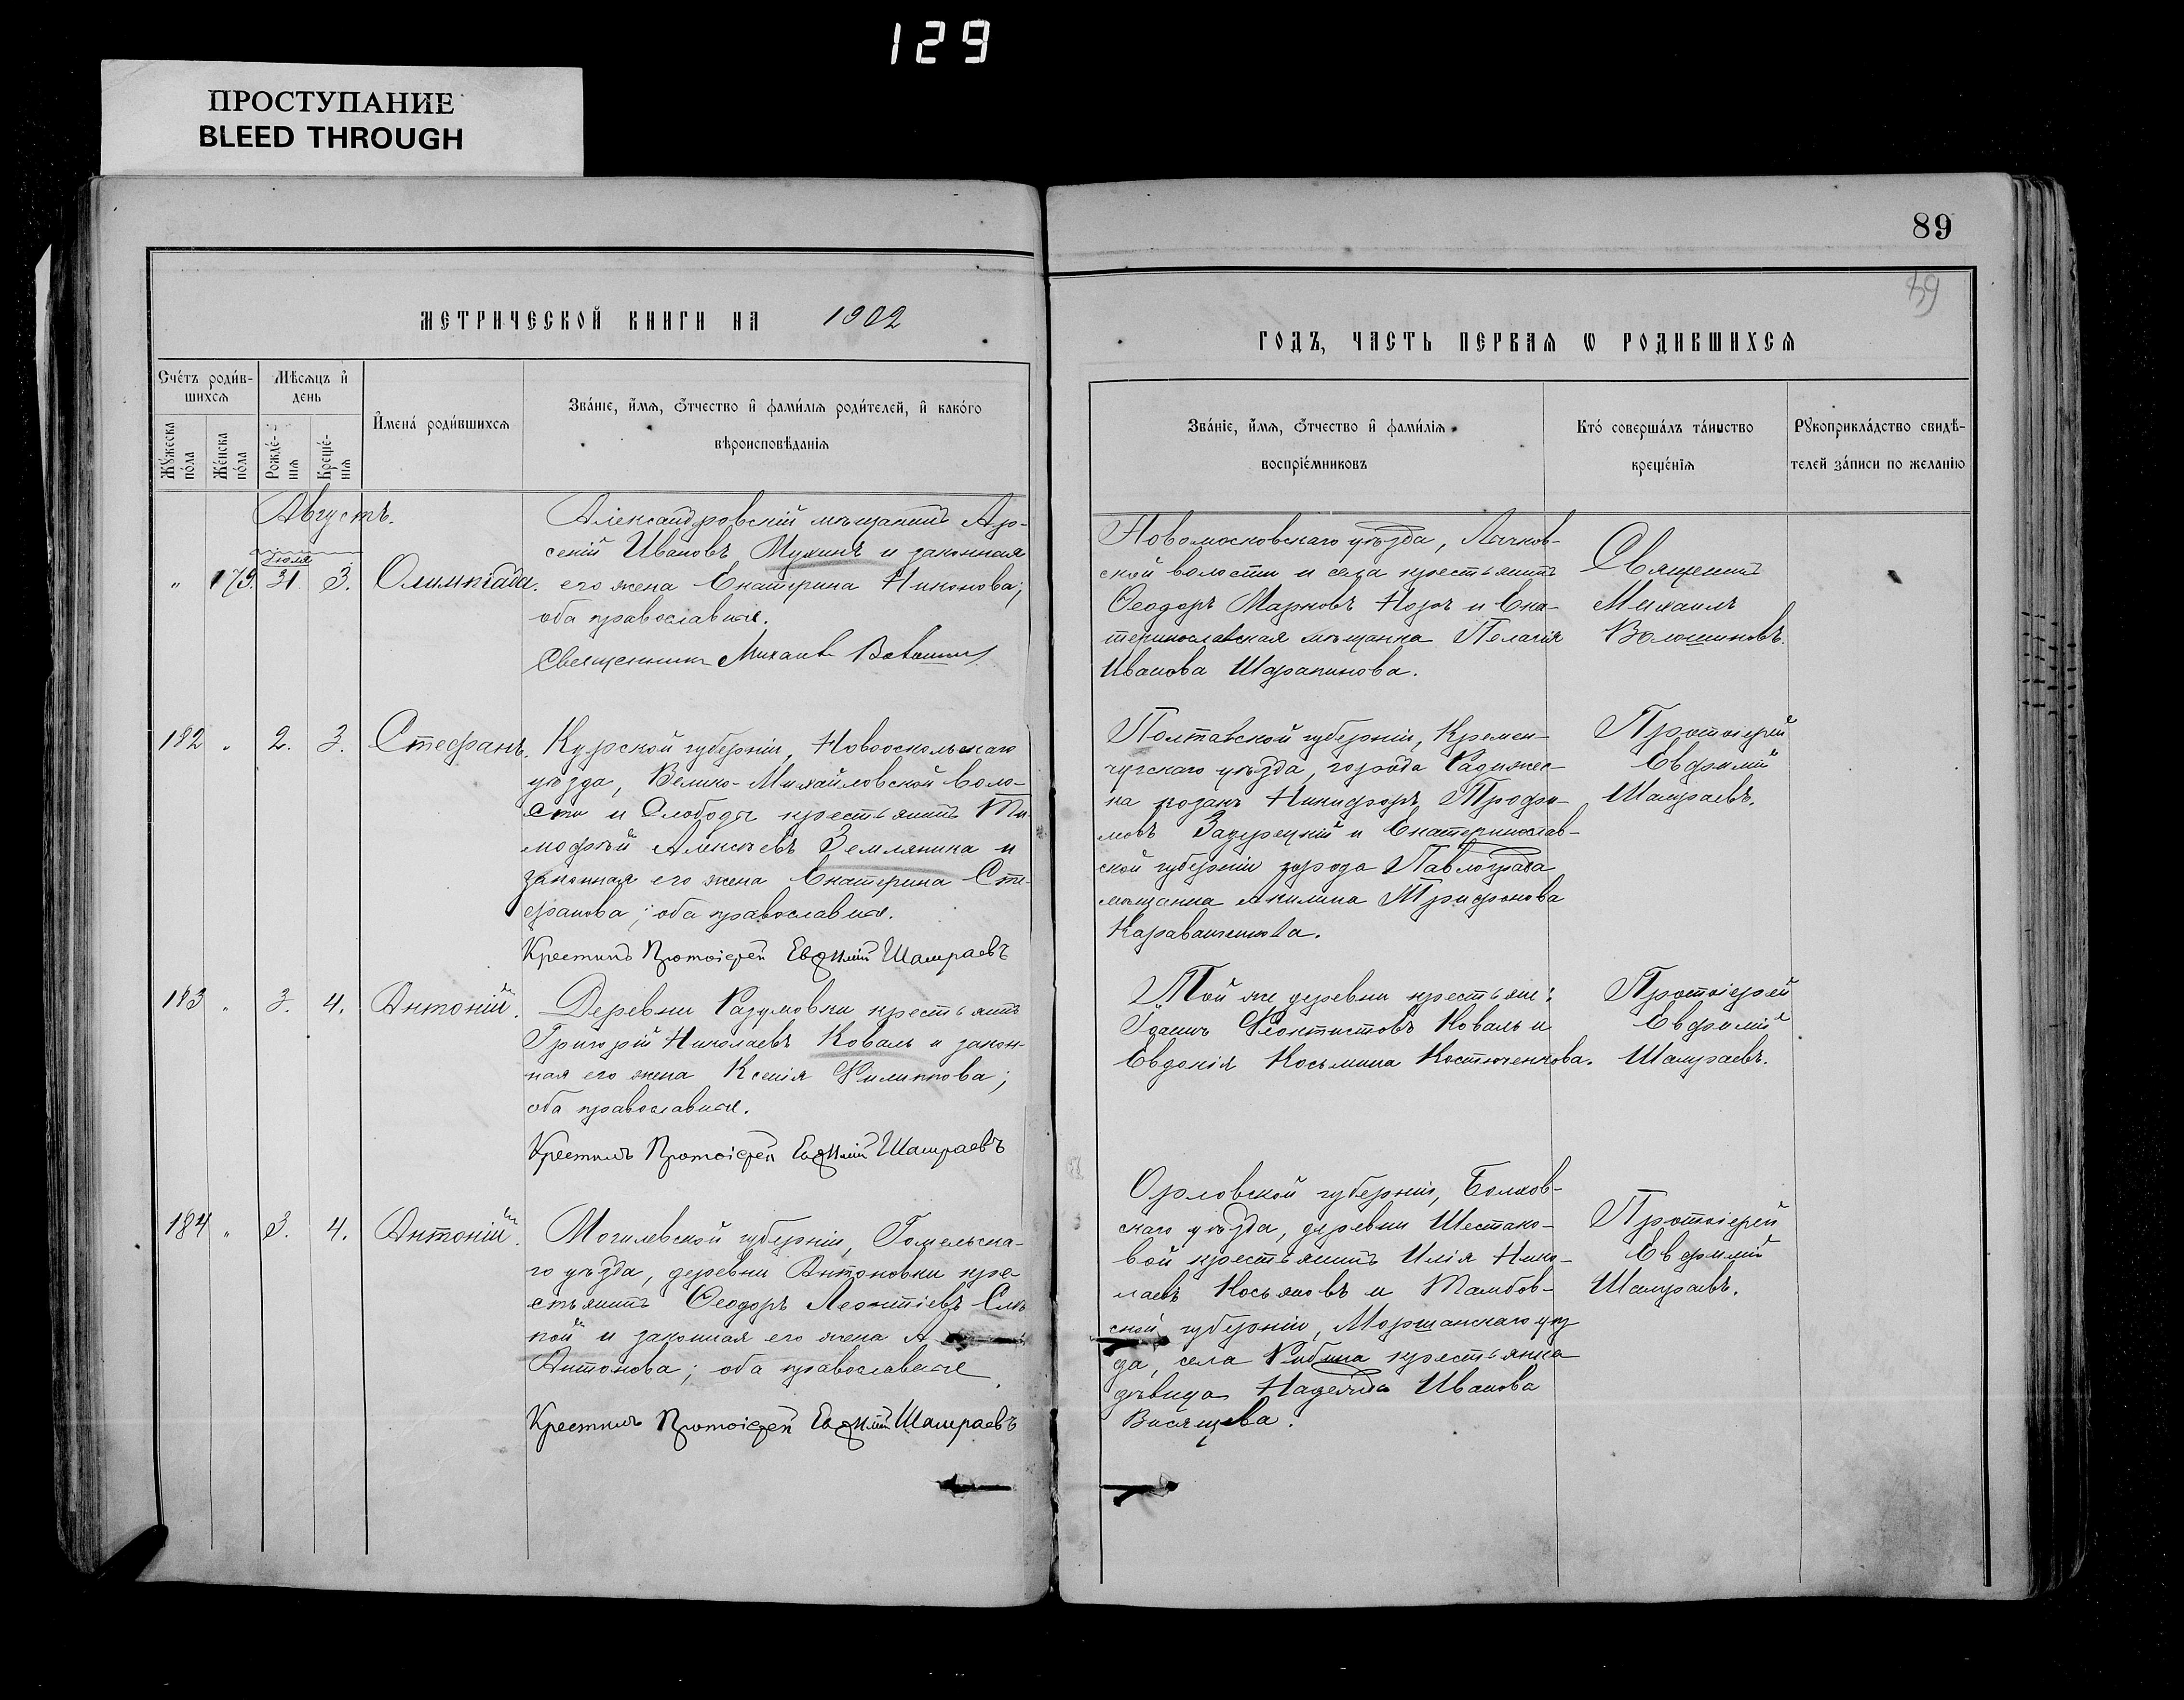 129
ПРОСТУПАНИЕ
BLEED THROUGH
89
МЕТРИЧЕСКОЙ КНИГИ НА 1902
ГОДЪ, ЧАСТЬ ПЕРВАЯ Ѡ РОДИВШИХСЯ
Счетъ родив-
шихся
Мѣсяцъ и
день
Мужеска
пола
Женска
пола
Рожде-
нія
Креще-
нія
Имена родившихся
Званіе, имя, отчество и фамилія родителей, и какого
вѣроисповѣданія
Званіе, имя, отчество и фамилія
воспріемниковъ
Кто совершалъ таинство
крещенія
Рукоприкладство свидѣ-
телей записи по желанію
Августъ.
Іюля
" 179. 31. 3. Олимпіада.
Александровскій мѣщанинъ Ар-
сеній Ивановъ Мухинъ и законная
его жена Екатерина Никонова;
оба православные.
Священникъ Михаилъ Волошиновъ
Новомосковскаго уѣзда, Лычков-
ской волости и села крестьянинъ
Ѳеодоръ Марковъ и Ека-
теринославская мѣщанка Пелагія
Иванова Шарапинова.
Священникъ
Михаилъ
Волошиновъ.
182 " 2. 3. Стефанъ.
Курской губерніи, Новооскольскаго
уѣзда, Велико-Михайловской воло-
сти и слободы крестьянинъ Ти-
мофей Алексѣевъ Земляника и
законная его жена Екатерина Сте-
фанова; оба православные.
Крестилъ Протоіерей Евфимій Шамраевъ
Полтавской губерніи, Кремен-
чугскаго уѣзда, города Радижес-
ка козакъ Никифоръ Трофи-
мовъ и Екатеринослав-
ской губерніи города Павлограда
мѣщанка Акилина Трифонова
Караванченкова.
Протоіерей
Евфимій
Шамраевъ.
183 " 3. 4. Антоній.
Деревни Разумовки крестьянинъ
Григорій Николаевъ Коваль и закон-
ная его жена Ксенія Филиппова;
оба православные.
Крестилъ Протоіерей Евфимій Шамраевъ
Той же деревни крестьяне:
Ѳеоктистовъ Коваль и
Евдокія Косьмина Костюченкова.
Протоіерей
Евфимій
Шамраевъ.
184 " 3. 4. Антоній.
Могилевской губерніи, Гомельска-
го уѣзда, деревни Антоновки кре-
стьянинъ Ѳеодоръ Леонтіевъ Слѣ-
пой и законная его жена А
Антонова; оба православные.
Крестилъ Протоіерей Евфимій Шамраевъ
Орловской губерніи, Болхов-
скаго уѣзда, деревни Шестако-
вой крестьянинъ Илія Нико-
лаевъ Косьяновъ и Тамбов-
ской губерніи, Моршанскаго уѣз-
да, села Рыбина крестьянка
дѣвица Надежда Иванова
Висящева.
Протоіерей
Евфимій
Шамраевъ.